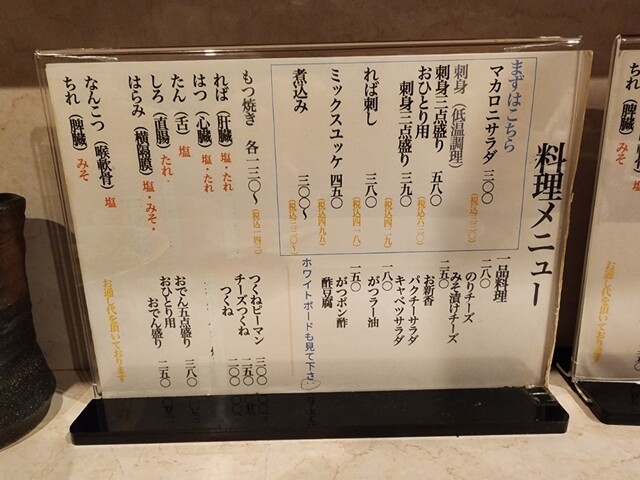 料理メニュー
まずはこちら
マカロニサラダ 三〇〇
(税込三三〇)
刺身(低温調理)
刺身三点盛り 五八〇
(税込六三八)
おひとり用
刺身三点盛り 三九〇
(税込四二九)
れば刺し 三八〇
(税込四一八)
ミックスユッケ 四五〇
(税込四九五)
煮込み 三〇〇〜
(税込三三〇〜)
もつ焼き 各一三〇〜
(税込一四三)
れば(肝臓) 塩・たれ
はつ(心臓) 塩・たれ
たん(舌) 塩
しろ(直腸) たれ
はらみ(横隔膜) 塩・みそ・
なんこつ(喉軟骨) 塩
ちれ(脾臓) みそ
一品料理
二八〇
のりチーズ
みそ漬けチーズ
二五〇
お新香
パクチーサラダ
キャベツサラダ
一八〇
がつラー油
一五〇
がつポン酢
酢豆腐
ホワイトボードも見て下さい
つくねピーマン 三〇〇
チーズつくね 二五〇
つくね 二〇〇
おでん五点盛り 三八〇
おひとり用
おでん盛り 二五〇
お通し代を頂いております
ちれ(脾臓)
お通し代を頂いております